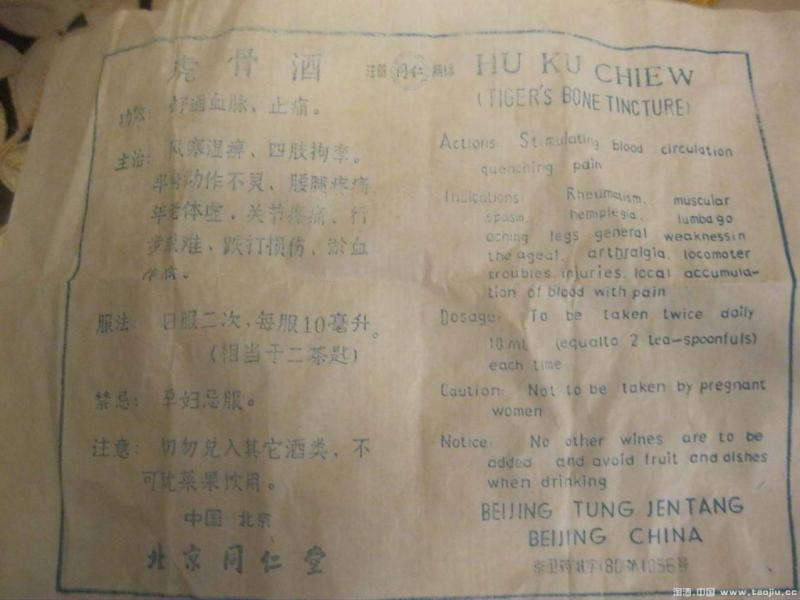 虎骨酒
注册 同仁 商标
功效：舒通血脉、止痛。
主治：风寒湿痹、四肢拘挛。
半身动作不灵、腰腿疼痛
年老体虚、关节疼痛、行
步艰难、跌打损伤、淤血
作痛。
服法：日服二次，每服10毫升。
（相当于二茶匙）
禁忌：孕妇忌服。
注意：切勿兑入其它酒类，不
可就菜果饮用。
中国 北京
北京同仁堂
HU KU CHIEW
(TIGER'S BONE TINCTURE)
Actions: Stimulating blood circulation
quenching pain
Indications: Rheumatism, muscular
spasm, hemiplegia, lumbago
aching legs general weaknessin
the ageal, arthralgia, locomoter
troubles injuries, local accumula-
tion of blood with pain
Dosage: To be taken twice daily
10 ml (equalto 2 tea-spoonfuls)
each time
Caution: Not to be taken by pregnant
women
Notice: No other wines are to be
added and avoid fruit and dishes
when drinking
BEIJING TUNG JEN TANG
BEIJING CHINA
京卫药准字(80)第1056号
淘酒.中国 www.taojiu.cc